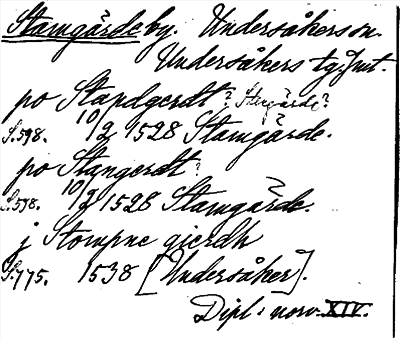 Stamgärde by. Undersåkers sn.
Undersåkers tg. Jmt.
po Standgerdt? Stengärde?
S. 598. 10/2 1528 Stamgärde.
po Stangerdt?
S. 598. 10/2 1528 Stamgärde.
j Stompne gierdh
S. 775. 1538 [Undersåker].
Dipl. norv. XIV.